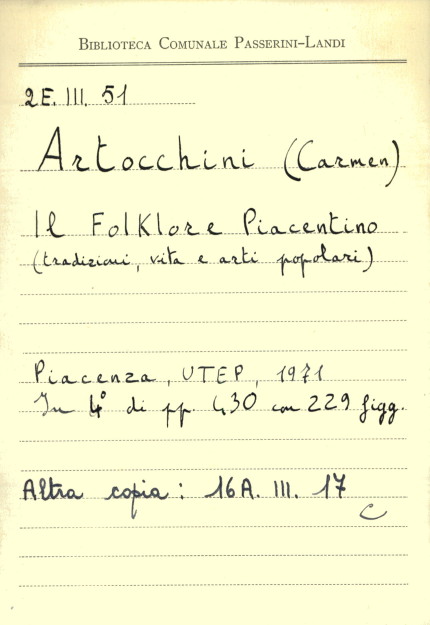 BIBLIOTECA COMUNALE PASSERINI-LANDI
2E. III. 51
Artocchini (Carmen)
Il Folklore Piacentino
(tradizioni, vita e arti popolari)
Piacenza, UTEP, 1971
In 4° di pp 430 con 229 figg.
Altra copia: 16A. III. 17
C